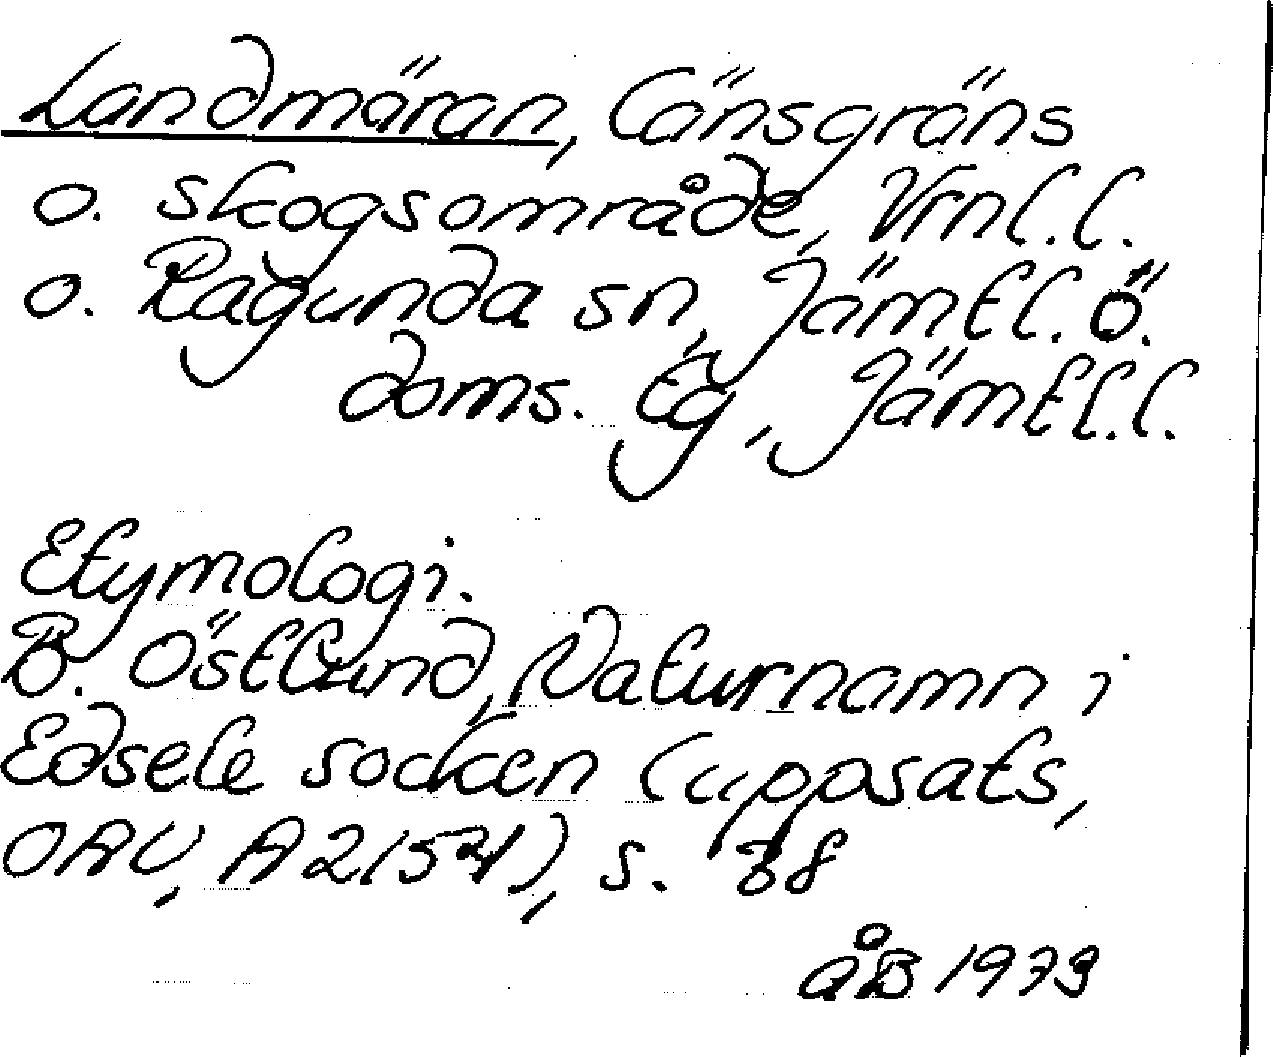 Landmäran, länsgräns
o. skogsområde, Vrnl. l.
o. Ragunda sn, Jämtl. ö.
doms. tg, Jämtl. l.
Etymologi.
B. Östlund, Naturnamn i
Edsele socken (uppsats,
OAU, A 2154), s. 38
åB 1973